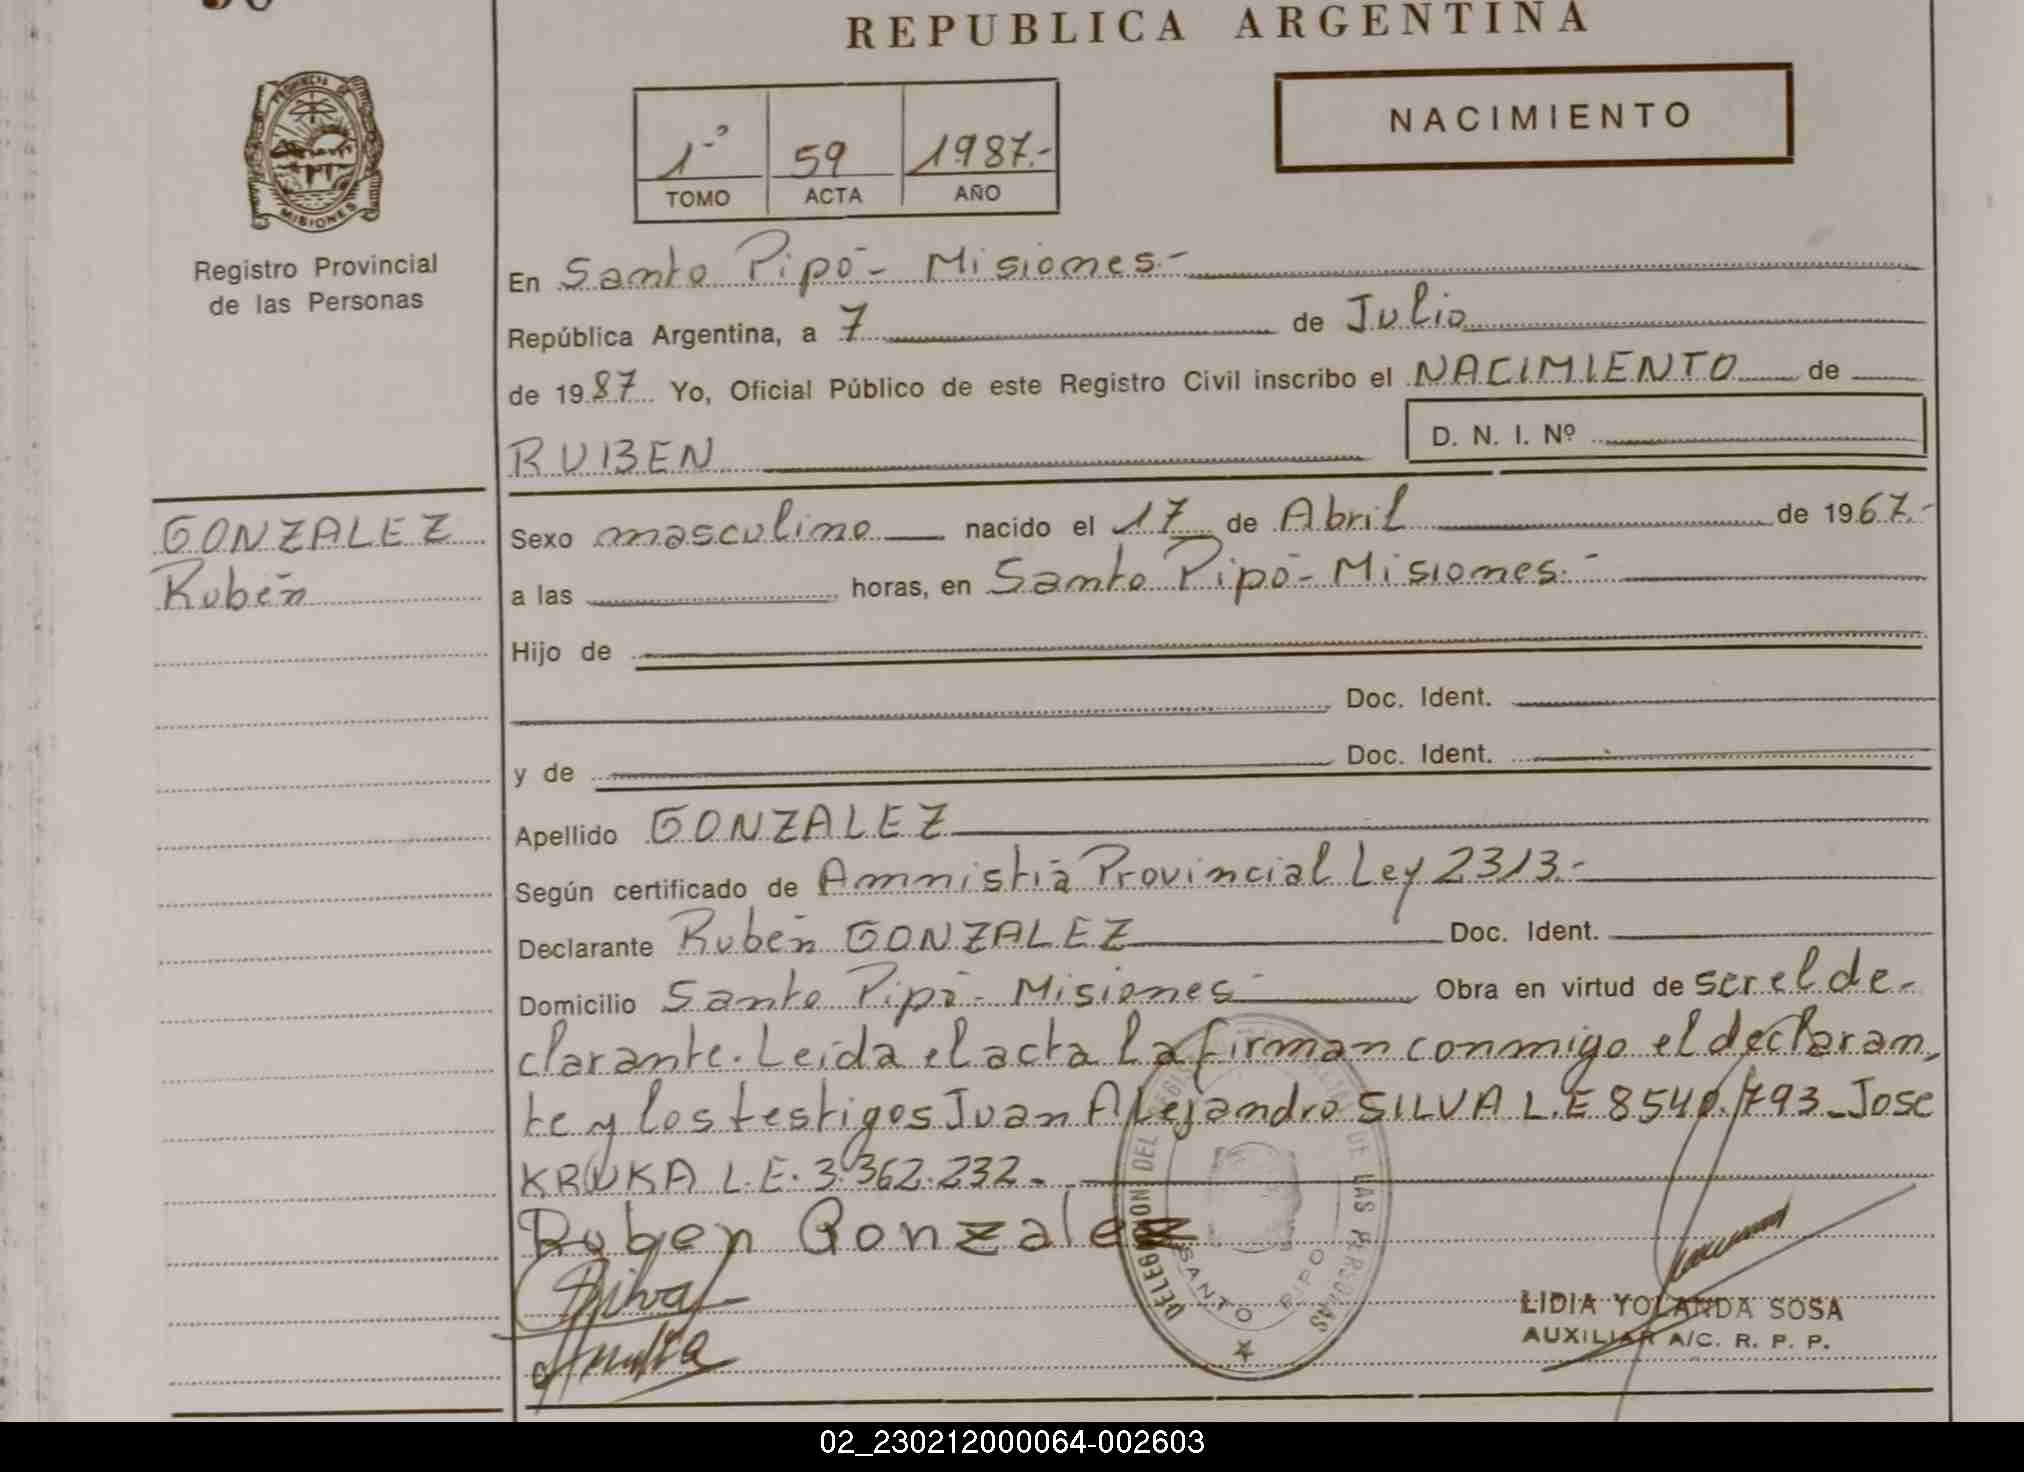 REPUBLICA ARGENTINA
PROVINCIA DE MISIONES
Registro Provincial
de las Personas
1º 59 1987.-
TOMO ACTA AÑO
NACIMIENTO
En Santo Pipó - Misiones.-
República Argentina, a 7 de Julio
de 1987 Yo, Oficial Público de este Registro Civil inscribo el NACIMIENTO de
RUBEN D. N. I. Nº
GONZALEZ
Rubén
Sexo masculino nacido el 17 de Abril de 1967.-
a las horas, en Santo Pipó - Misiones.-
Hijo de
Doc. Ident.
y de Doc. Ident.
Apellido GONZALEZ
Según certificado de Amnistía Provincial Ley 2313.-
Declarante Rubén GONZALEZ Doc. Ident.
Domicilio Santo Pipó - Misiones Obra en virtud de ser el de-
clarante. Leída el acta la firman conmigo el declaran,
te y los testigos Juan Alejandro SILVA L.E 8540.793 - Jose
KRUKA L.E. 3.362.232 -
Ruben Gonzalez
Silva
DELEGACION DEL REGISTRO PROVINCIAL DE LAS PERSONAS
SANTO PIPO
LIDIA YOLANDA SOSA
AUXILIAR A/C. R. P. P.
02_230212000064-002603